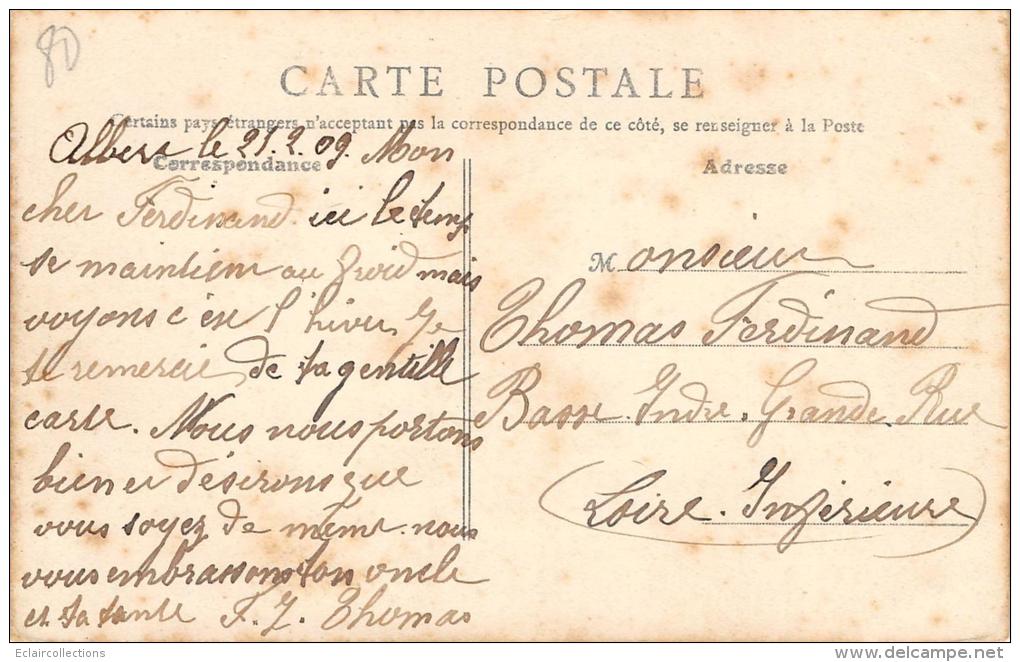 80
CARTE POSTALE
Certains pays étrangers n'acceptant pas la correspondance de ce côté, se renseigner à la Poste
Correspondance
Albert le 21.2.09. Mon
cher Ferdinand ici le temp
se maintient au froid mais
voyons c'est l'hiver Je
te remercie de ta gentille
carte. Nous nous portons
bien et désirons que
vous soyez de même. nous
vous embrassons ton oncle
et ta tante F. J. Thomas
Adresse
Monsieur
Thomas Ferdinand
Basse. Indre. Grande. Rue
(Loire. Inférieure)
Eclaircollections
www.delcampe.net